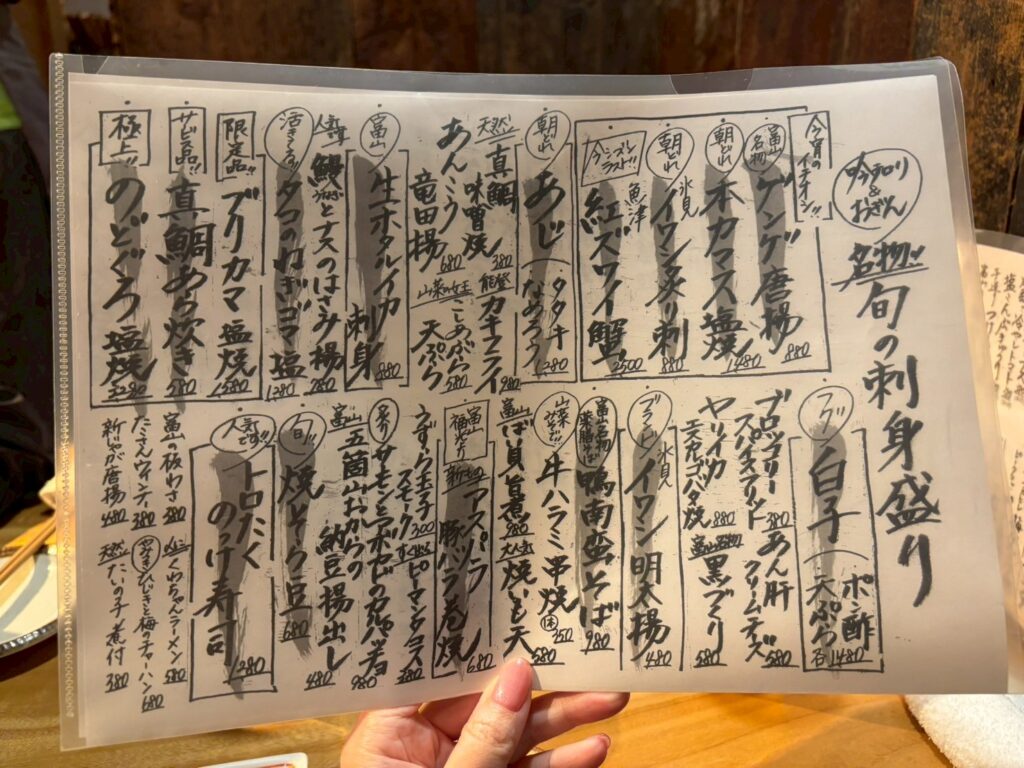 吟和り
&
おでん
名物!! 旬の刺身盛り
今宵のイチオシ!!
富山名物 ゲンゲ唐揚 880
朝どれ 本カマス塩焼 1480
朝どれ 氷見 イワシ炙り刺 880
今シーズンラスト!! 魚津 紅ズワイ蟹 2500
朝どれ あじ タタキ なめろう 1280
天然 真鯛 味噌焼 380
能登 カキフライ 980
あんこう 竜田揚 680
山菜の女王 こしあぶら 天ぷら 580
富山 生ホタルイカ 刺身 880
人気 鰻とナスのはさみ揚 780
活きてる!! タコのねぎゴマ塩 1280
限定品!! ブリカマ 塩焼 1580
サービス品!! 真鯛あら炊き 580
極上!! のどぐろ塩焼 3280
フグ 白子 ポン酢 天ぷら 各1480
ブロッコリー スパイスフリット 380
あん肝 クリームチーズ 580
ヤリイカ エスカルゴバタ焼 880
富山名物 黒づくり 580
ブランド 氷見 イワシ明太揚 480
鴨南蛮そば 980
山菜 牛ハラミ串焼 350
富山ばい貝旨煮 980
大人気 焼いも天 580
富山福光より 新もの アスパラ 豚バラ巻焼 680
うずら玉子 スモーク 300
ピーマンタコス 380
炙りサーモンとアボカド 980
富山 五箇山おからの納豆揚出し 480
旬!! 焼そら豆 680
人気です!! トロたく のっけ寿司 1280
富山の板わさ 380
たこさんウインナー 380
新じゃが唐揚 480
くわちゃんラーメン 580
ひじきと梅のチャーハン 680
天然 たいの子煮付 380